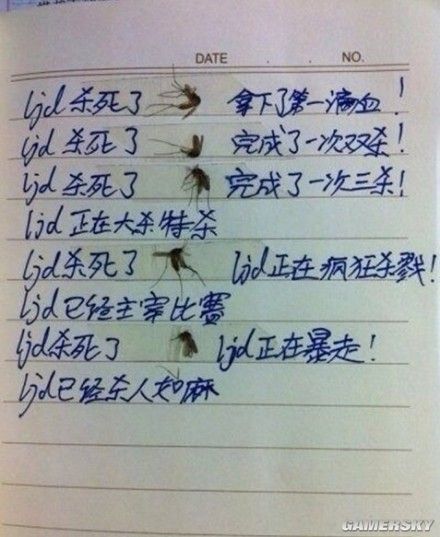 DATE . . NO.
ljd 杀死了 拿下了第一滴血!
ljd 杀死了 完成了一次双杀!
ljd 杀死了 完成了一次三杀!
ljd 正在大杀特杀
ljd 杀死了 ljd正在疯狂杀戮!
ljd已经主宰比赛
ljd杀死了 ljd正在暴走!
ljd已经杀人如麻
GAMERSKY